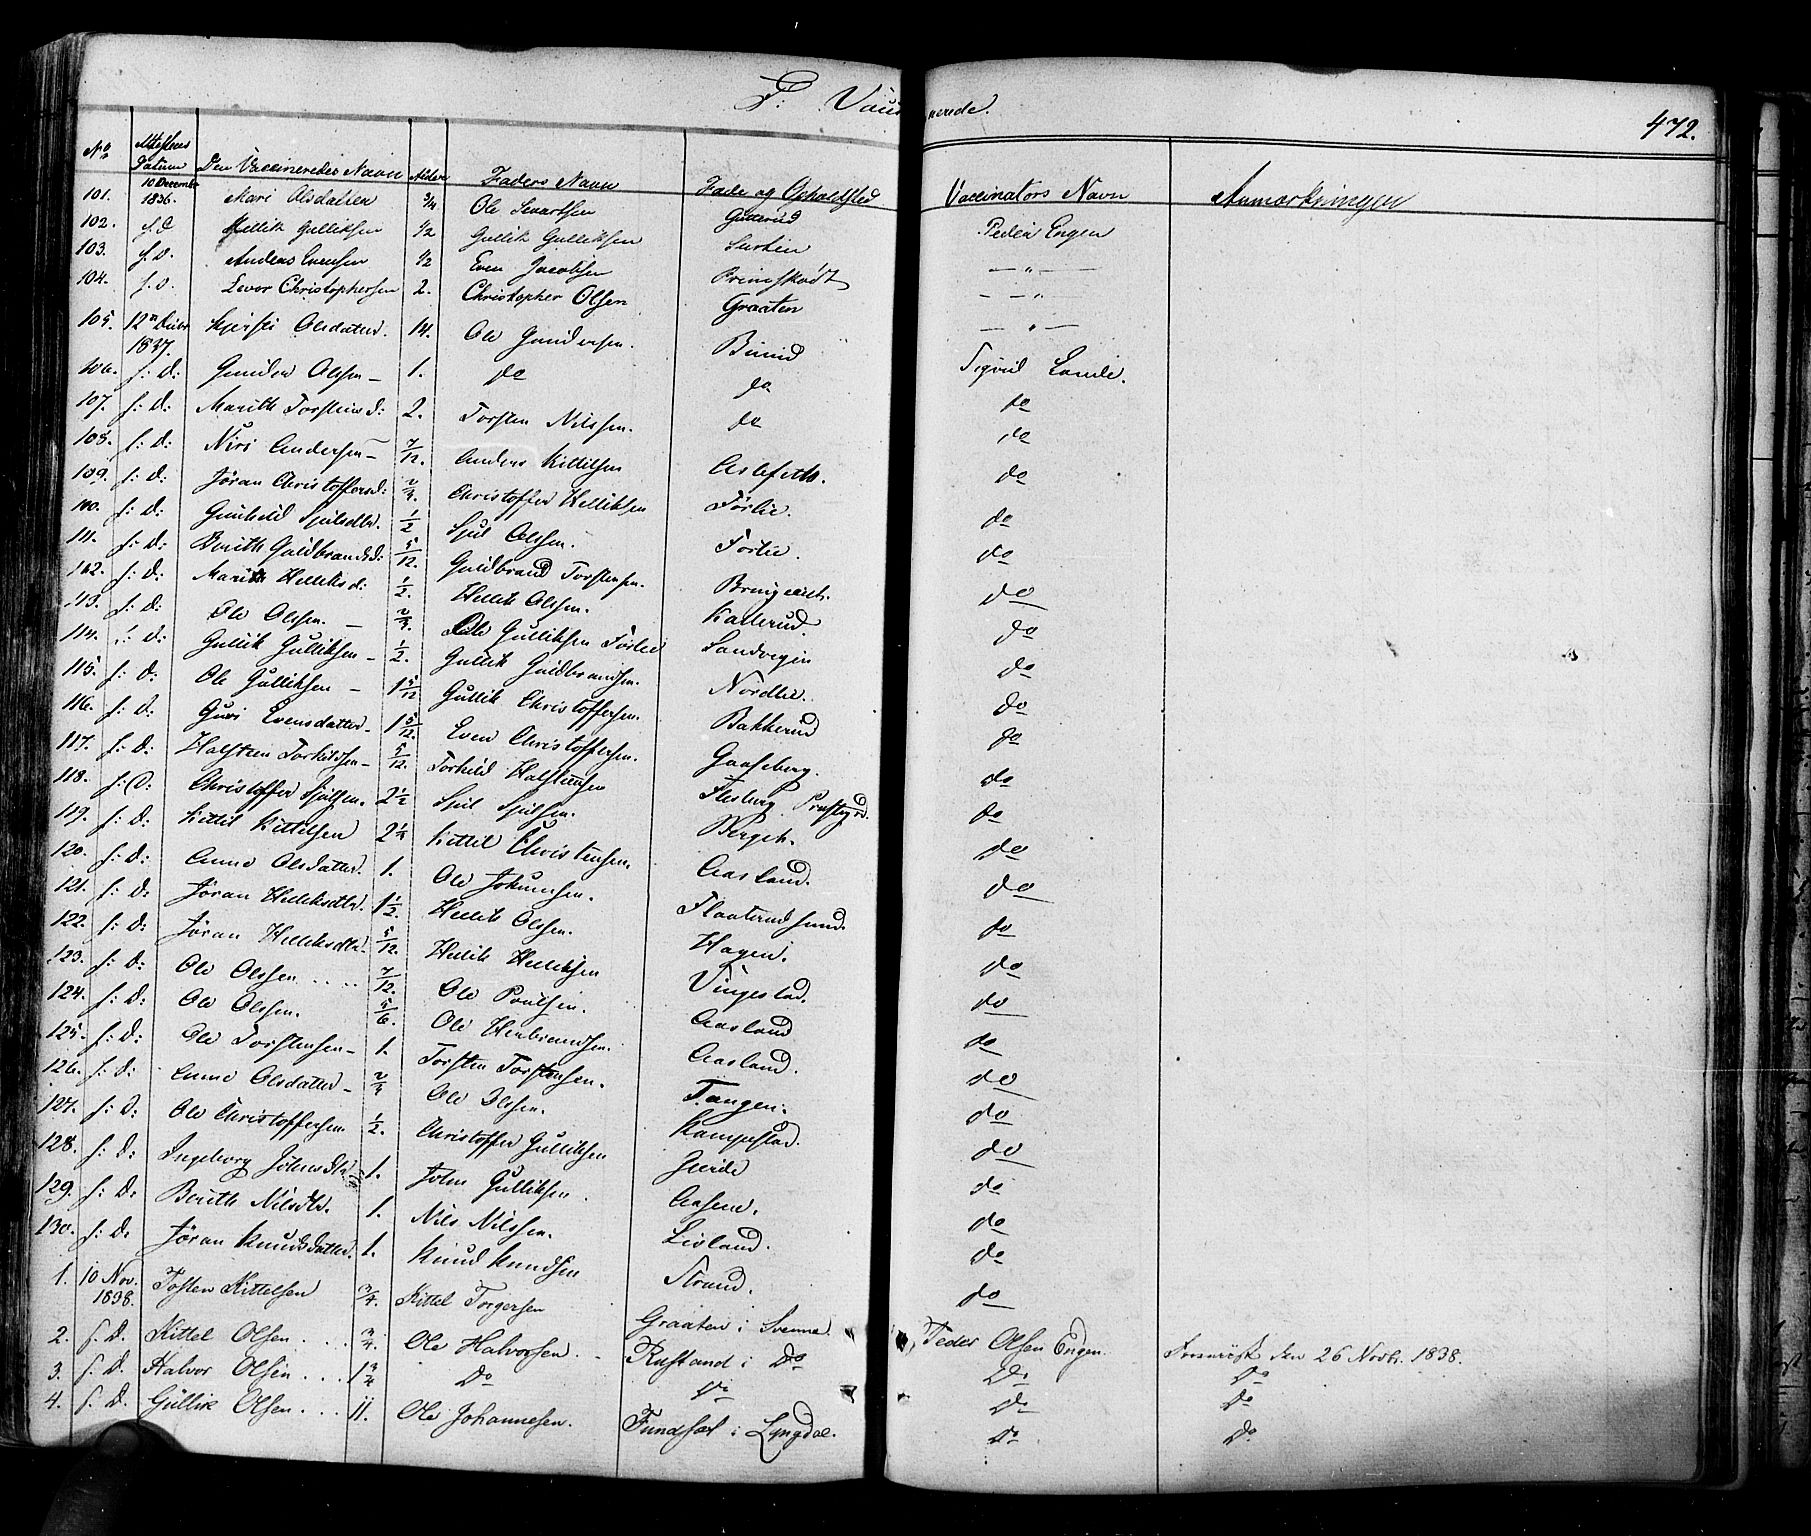 F: Vaccinerede.
472.
No Attestens Datum Den Vaccineredes Navn Alder Faders Navn Føde og Opholdsted Vaccinators Navn Anmærkninger
101. 10 December 1836. Mari Olsdatter 3/4 Ole Svartsen Peder Engen
102. s. d Hellik Gulliksen 1/2 Gullik Gulliksen — " —
103. s. d. Anders Evensen 1/2 Even Jacobsen — " —
104. s. d. Levor Christophersen 2. Christopher Olsen Graaten — " —
105. 12n Debr 1837. Kjersti Olsdatter. 14. Ole Gundersen. Sigvid Lande.
106. s: D: Gunder Olsen — 1. do do do
107. s: D: Marith Torsteinsd: 2. Torsten Nilssen. do do
108. s: D: Niri Andersen — 7/12. Anders Kittilsen Aslefeth. do
109. s: D: Jøran Christoffersd: 2/3. Christoffer Helliksen Førlie. do
110. s: D: Gunhild Sjulsdtr. 1/2 Sjul Olssen. Førlie. do
111. s: D: Berith Guldbrandsd: 5/12. Guldbrand Torstensen. do
112. s: D: Marith Helliksd: 1/2. Hellik Olssen. Kallerud. do
113. s: D: Ole Olssen. — 2/3. Ole Gulliksen Førlie Sandvegin do
114. s: D: Gullik Gulliksen — 1/2. Gullik Guldbrandsen. Nordlie. do
115. s: D. Ole Gulliksen — 1 5/12 Gullik Christoffersen. Bakkerud do
116. s: D: Guri Evensdatter — 1 5/12. Even Christoffersen. Gaaseberg. do
117. s: D: Halsteen Torkildsen — 5/12. Torkild Halstensen Flesberg Præstegrd. do
118. s: D: Christoffer Sjulsen. 2 1/2 Sjul Sjulsen. Bergeh. do
119. s: D: Kittil Kittelsen 2 1/4 Kittil Christensen. Aasland. do
120. s: D: Anne Olsdatter. 1. Ole Jokumsen. Flaaterudsund. do
121. s: D. Jøran Helliksdtr. 1 1/2. Hellik Olssen. Hagen. do
122. s: D: Jøran Helliksdtr. 5/12. Hellik Helliksen Vingestad. do
123. s: D: Ole Olssen .... 7/12. Ole Poulsen. Aasland do
124. s: D: Ole Olssen. 5/6. Ole Henbrandsen. Aasland. do
125. s: D: Ole Torstensen — 1. Torsten Torstensen. Tangen. do
126. s: D: Anne Olsdatter — 2/3 Ole Olssen. Kampestad. do
127. s: D: Ole Christoffersen 1/2. Christoffer Gulliksen do
128. s: D: Ingeborg Johnsdtr. 1. John Gulliksen. Aasene. do
129. s: D. Berith Nilsdtr. 1. Nils Nilssen. Livland. do
130. s: D. Jøran Knudsdatter. 1. Knud Knudsen Strand. do
1. 10 Nov. 1838. Tosten Kittelsen 3/4. Kittel Torgersen Graaten i Svenne Peder Olsen Engen. den 26 Novbr. 1838.
2. s. D. Kittel Olsen ... 3/4. Ole Halvorsen. Rustand i Do Do Do
3. s. D. Halvor Olsen ... 1 3/4 Do Do Do Do
4. s. D. Gullik Olsen ... 11. Ole Johannesen. i Lyngdal. Do Do